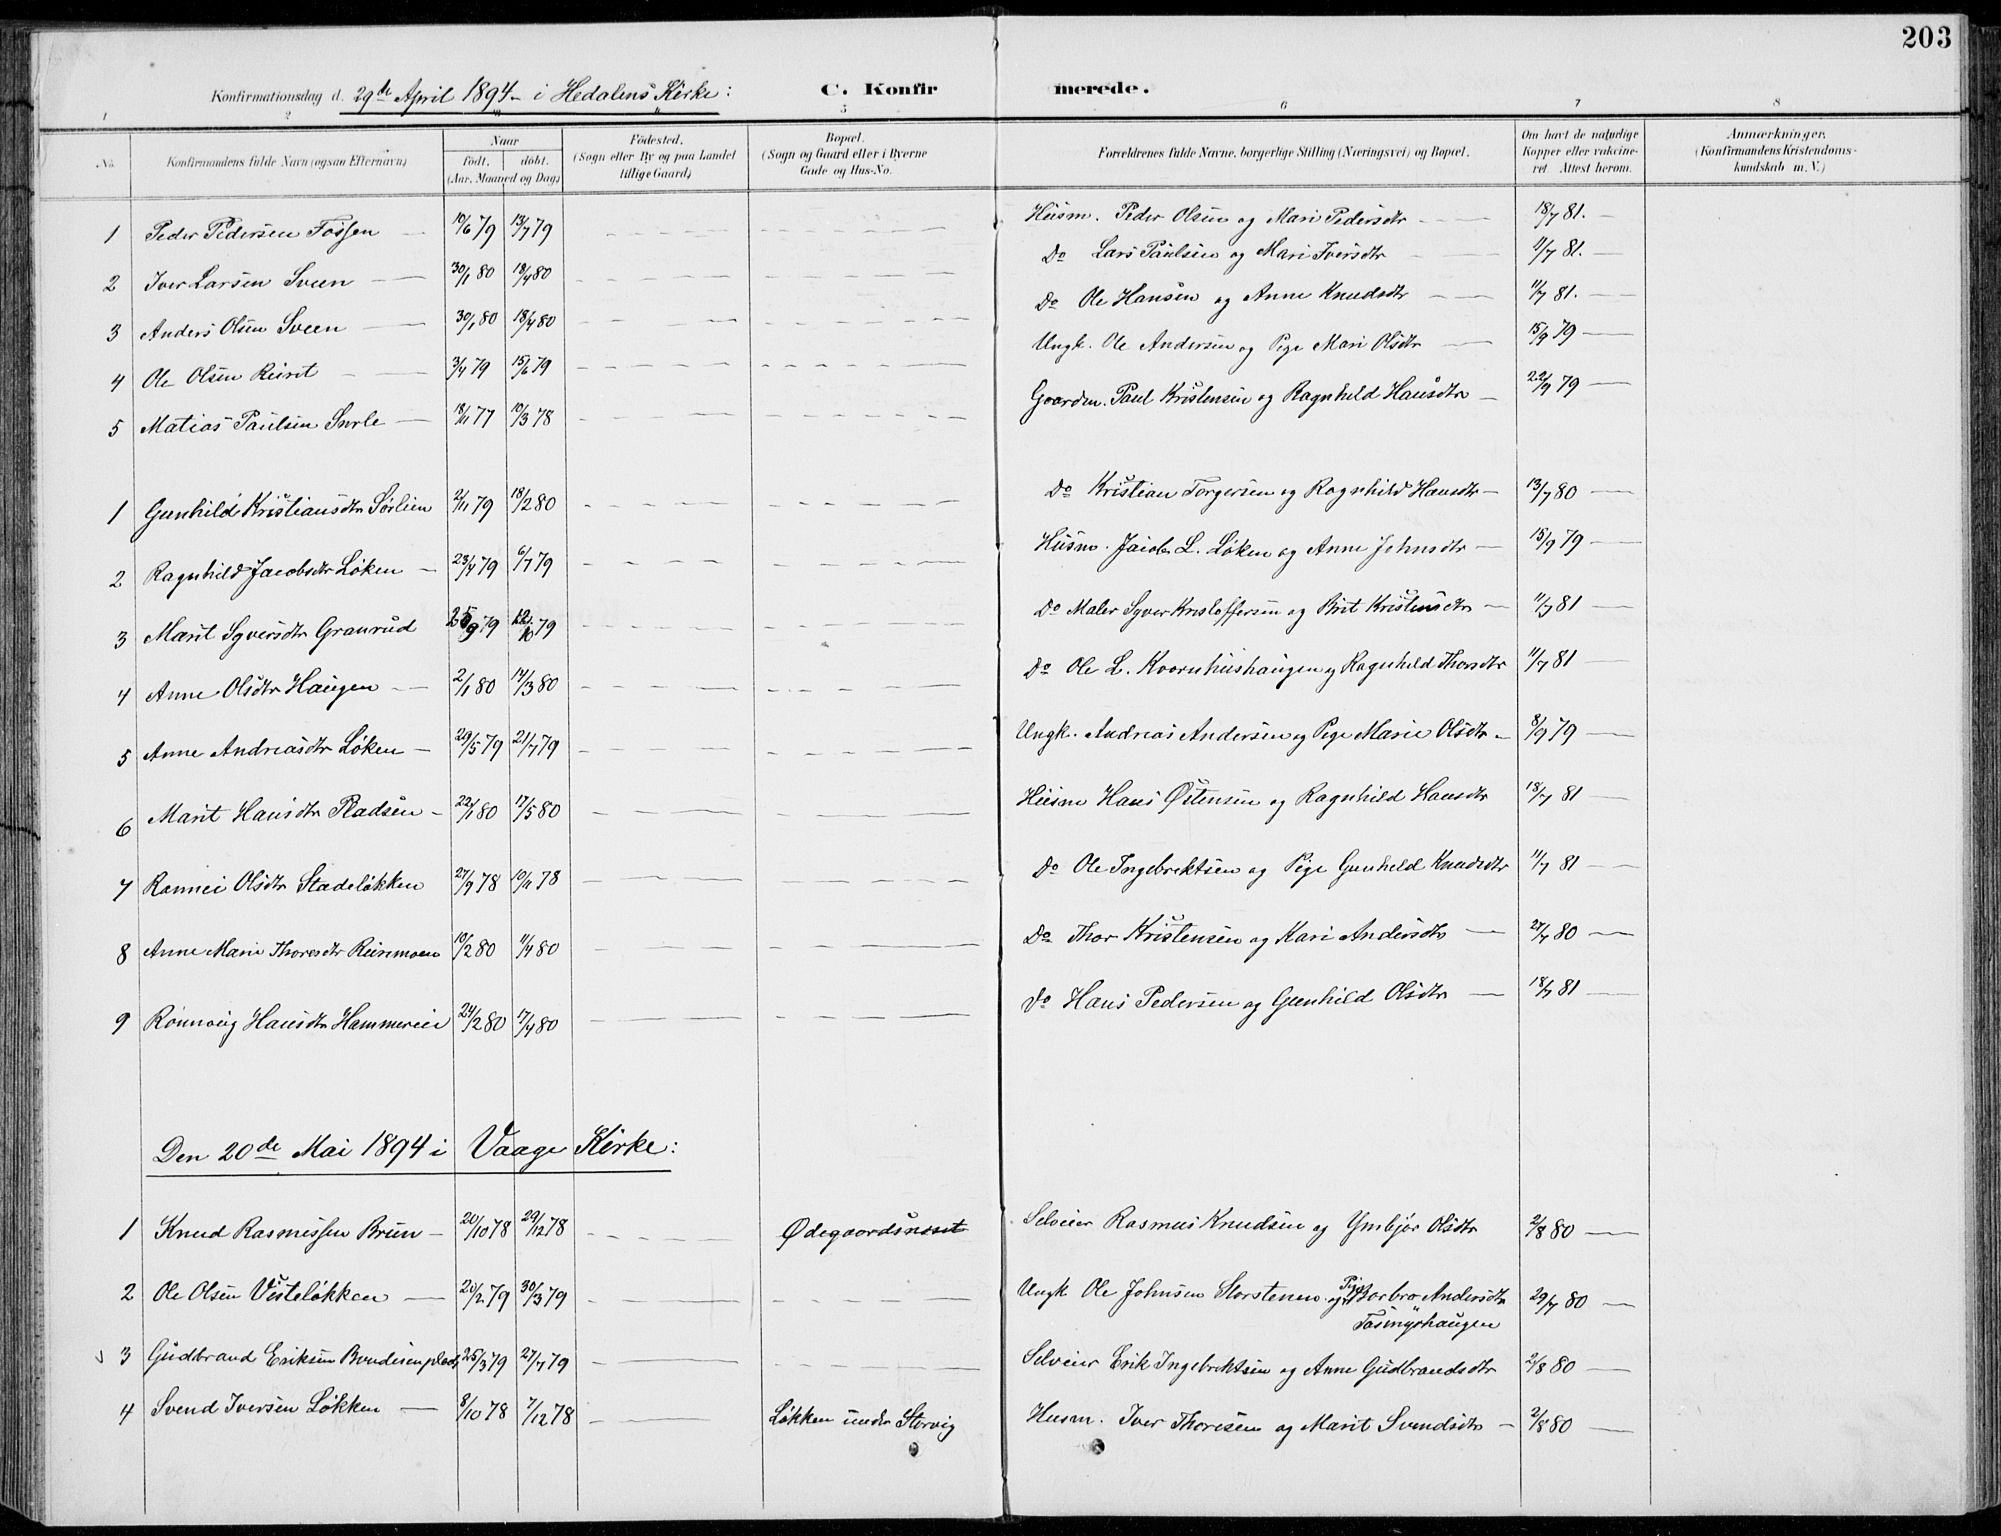 203
Konfirmationsdag d. 29de April 1894 i Hedalens Kirke: C. Konfirmerede.
1 2 3 4 5 6 7 8
No. Konfirmandens fulde Navn (ogsaa Efternavn) Naar født. døbt. (Aar, Maaned og Dag) Fødested. (Sogn eller By og paa Landet tillige Gaard) Bopæl. (Sogn og Gaard eller i Byerne Gade og Hus-No. Forældrenes fulde Navne, borgerlige Stilling (Næringsvei) og Bopæl. Om havt de naturlige Kopper eller vakcineret Attest herom. Anmærkninger. (Konfirmandens Kristendomskundskab m. V.)
1 Peder Pedersen Fossen 10/6 79 13/7 79 Husm. Peder Olsen og Mari Pedersdtr 18/7 81.
2 Iver Larsen Sveen 30/1 80 18/4 80 Do Lars Paulsen og Mari Iversdtr 11/7 81.
3 Anders Olsen Sveen 30/1 80 18/4 80 Do Ole Hansen og Anne Knudsdtr 11/7 81.
4 Ole Olsen 3/4 79 15/6 79 Ungk. Ole Andersen og Pige Mari Olsdtr 15/9 79
5 Matias Paulsen 18/11 77 10/3 78 Gaardm. Paul Kristensen og Ragnhild Hansdtr 22/9 79
1 Gunhild Kristiansdtr Sørlien 2/11 79 18/2 80 Do Kristian Torgersen og Ragnhild Hansdtr 13/7 80
2 Ragnhild Jacobsdtr Løken 23/4 79 6/7 79 Husm. Jacob L. Løken og Anne Johnsdtr 15/9 79
3 Marit Syversdtr Granrud 25/9 79 12/10 79 Do Maler Syver Kristoffersen og Brit Kristensdtr 11/7 81
4 Anne Olsdtr Haugen 2/1 80 14/3 80 Do Ole L. Kvernhushaugen og Ragnhild Thorsdtr 11/7 81
5 Anne Andreasdtr Løken 29/5 79 21/7 79 Ungk. Andreas Andersen og Pige Marie Olsdtr 8/9 79
6 Marit Hansdtr Pladsen 22/1 80 17/5 80 Husm Hans Østensen og Ragnhild Hansdtr 18/7 81
7 Rannei Olsdtr Stadeløkken 27/9 78 10/11 78 Do Ole Ingebrektsen og Pige Gunhild Knudsdtr 11/7 81
8 Anne Marie Thoresdtr Reinmoen 10/2 80 11/4 80 Do Thor Kristensen og Kari Andersdtr 27/7 80
9 Rønnoug Hansdtr Hammereie 24/2 80 17/4 80 Do Hans Pedersen og Gunhild Olsdtr 18/7 81
Den 20de Mai 1894 i Vaage Kirke:
1 Knud Rasmussen Brun 20/10 78 29/12 78 Ødegaardsneset Selveier Rasmus Knudsen og Ymbjør Olsdtr 2/8 80
2 Ole Olsen Visteløkken 20/2 79 30/3 79 Ungk Ole Johnsen Storstenen og Pige Torbro Andersdtr 29/7 80
3 Gudbrand Eriksen 25/3 79 27/7 79 Selveier Erik Ingebrektsen og Anne Gudbrandsdtr 2/8 80
4 Svend Iversen Løkken 8/10 78 7/12 78 Løkken under Storvig Husm. Iver Thoresen og Marit Svendsdtr 2/8 80